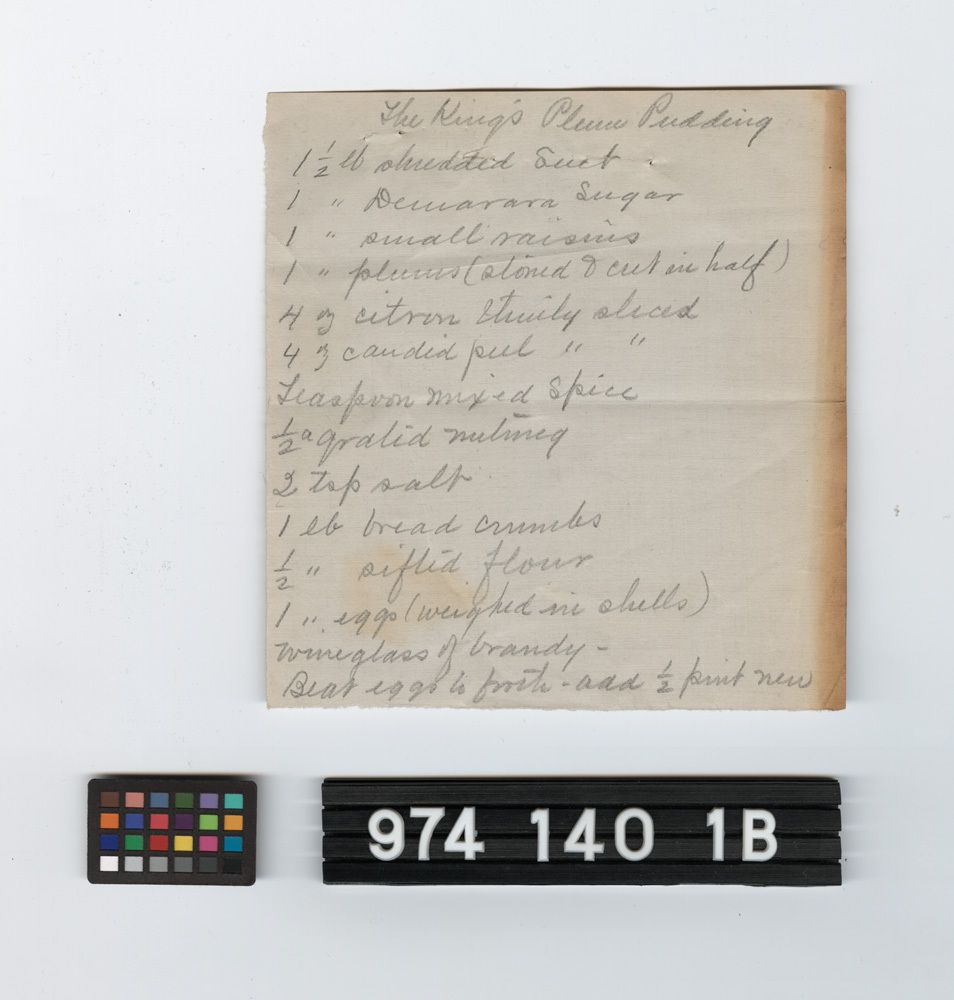 The King's Plum Pudding
1 1/2 lb shredded Suet
1 " Demarara Sugar
1 " small raisins
1 " plums (stoned & cut in half)
4 oz citron thinly sliced
4 oz candid peel " "
Teaspoon mixed Spice
1/2 a grated nutmeg
2 tsp salt
1 lb bread crumbs
1/2 " sifted flour
1 " eggs (weighed in shells)
Wineglass of brandy -
Beat eggs to froth - add 1/2 pint new
974 140 1B